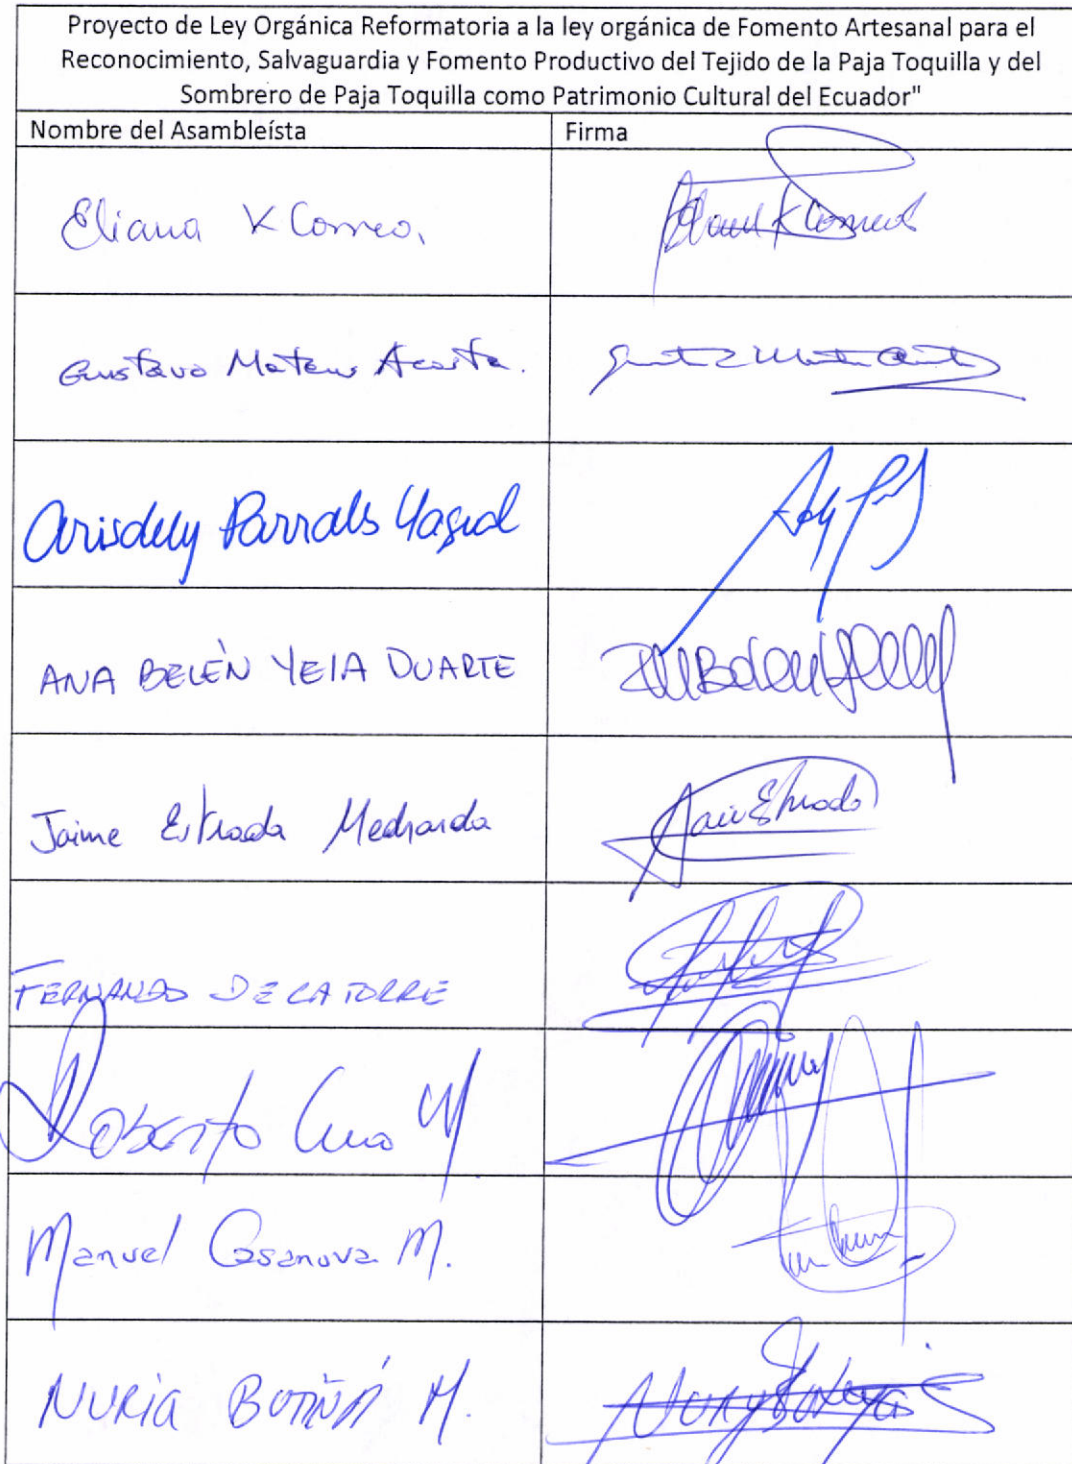 Proyecto de Ley Orgánica Reformatoria a la ley orgánica de Fomento Artesanal para el
Reconocimiento, Salvaguardia y Fomento Productivo del Tejido de la Paja Toquilla y del
Sombrero de Paja Toquilla como Patrimonio Cultural del Ecuador"
Nombre del Asambleísta Firma
Eliana K Correa.
Gustavo Mateus Acosta.
Arisdely Parrales Yagual
ANA BELÉN YEIA DUARTE
Jaime Estrada Medranda Jaime Estrada
FERNANDO DE LA TORRE
Roberto Cuero M
Manuel Casanova M.
NURIA M.